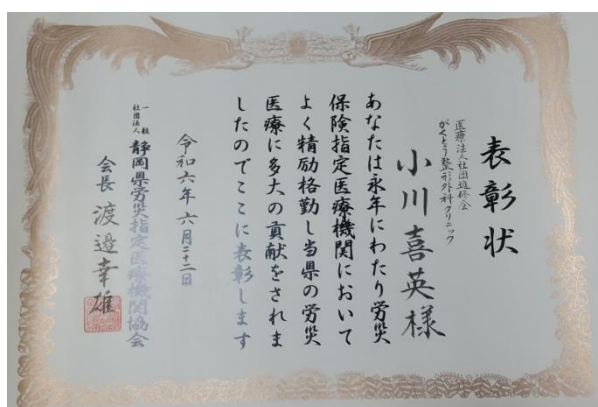 表彰状
医療法人社団進修会
がくとう整形外科クリニック
小川喜英様
あなたは永年にわたり労災
保険指定医療機関において
よく精励格勤し当県の労災
医療に多大の貢献をされま
したのでここに表彰します
令和六年六月二十二日
一般
社団法人
静岡県労災指定医療機関協会
会長 渡邉幸雄